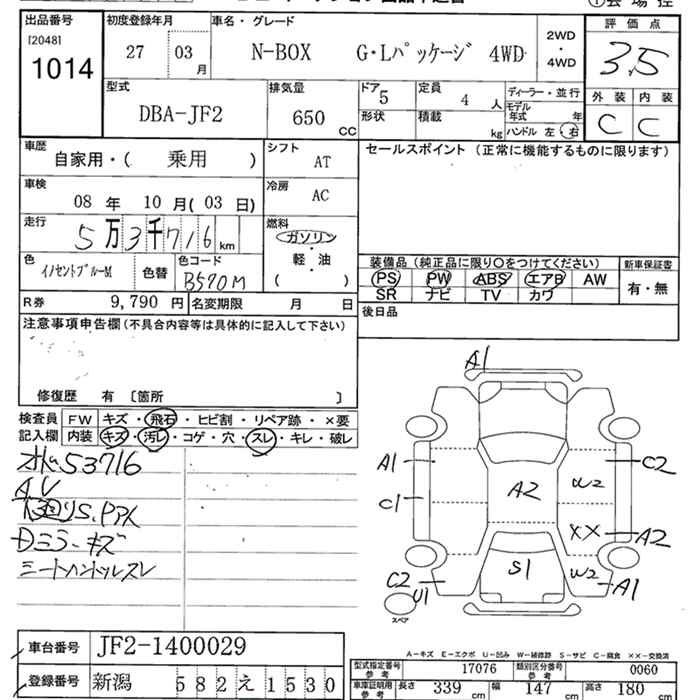 出品番号 初度登録年月 車名・グレード 評価点
[2048] 1014
27 03月 N-BOX G・Lパッケージ 4WD 2WD・4WD 3.5
型式 排気量 ドア 定員 ディーラー・並行 外装 内装
DBA-JF2 650cc 5 4人 モデル年式 年 C C
形状 積載 kg ハンドル 左・右
車歴 シフト セールスポイント(正常に機能するものに限ります)
自家用・( 乗用 ) AT
車検 冷房
08年 10月(03日) AC
走行 燃料
5万3千716km ガソリン・軽油
( )
色 色コード 装備品(純正品に限り○をつけてください) 新車保証書
イノセントブルーM 色替 B570M PS PW ABS エアB AW 有・無
SR ナビ TV カワ
R券 9,790円 名変期限 月 日 後日品
注意事項申告欄(不具合内容等は具体的に記入して下さい)
修復歴 有 [箇所 ]
検査員記入欄 FW キズ・飛石・ヒビ割・リペア跡・×要
内装 キズ・汚レ・コゲ・穴・スレ・キレ・破レ
53716
A.V
Dミラーキズ
A1
A1 C2
C1 A2 W2
XX A2
S1 W2
C2 U1 A1
スペア
A-キズ E-エクボ U-凹み W-補修跡 S-サビ C-腐食 ××-交換済
車台番号 JF2-1400029
型式指定番号 参考 17076 類別区分番号 参考 0060
登録番号 新潟 582 え 1530
車庫証明用 参考 長さ 339cm 幅 147cm 高さ 180cm